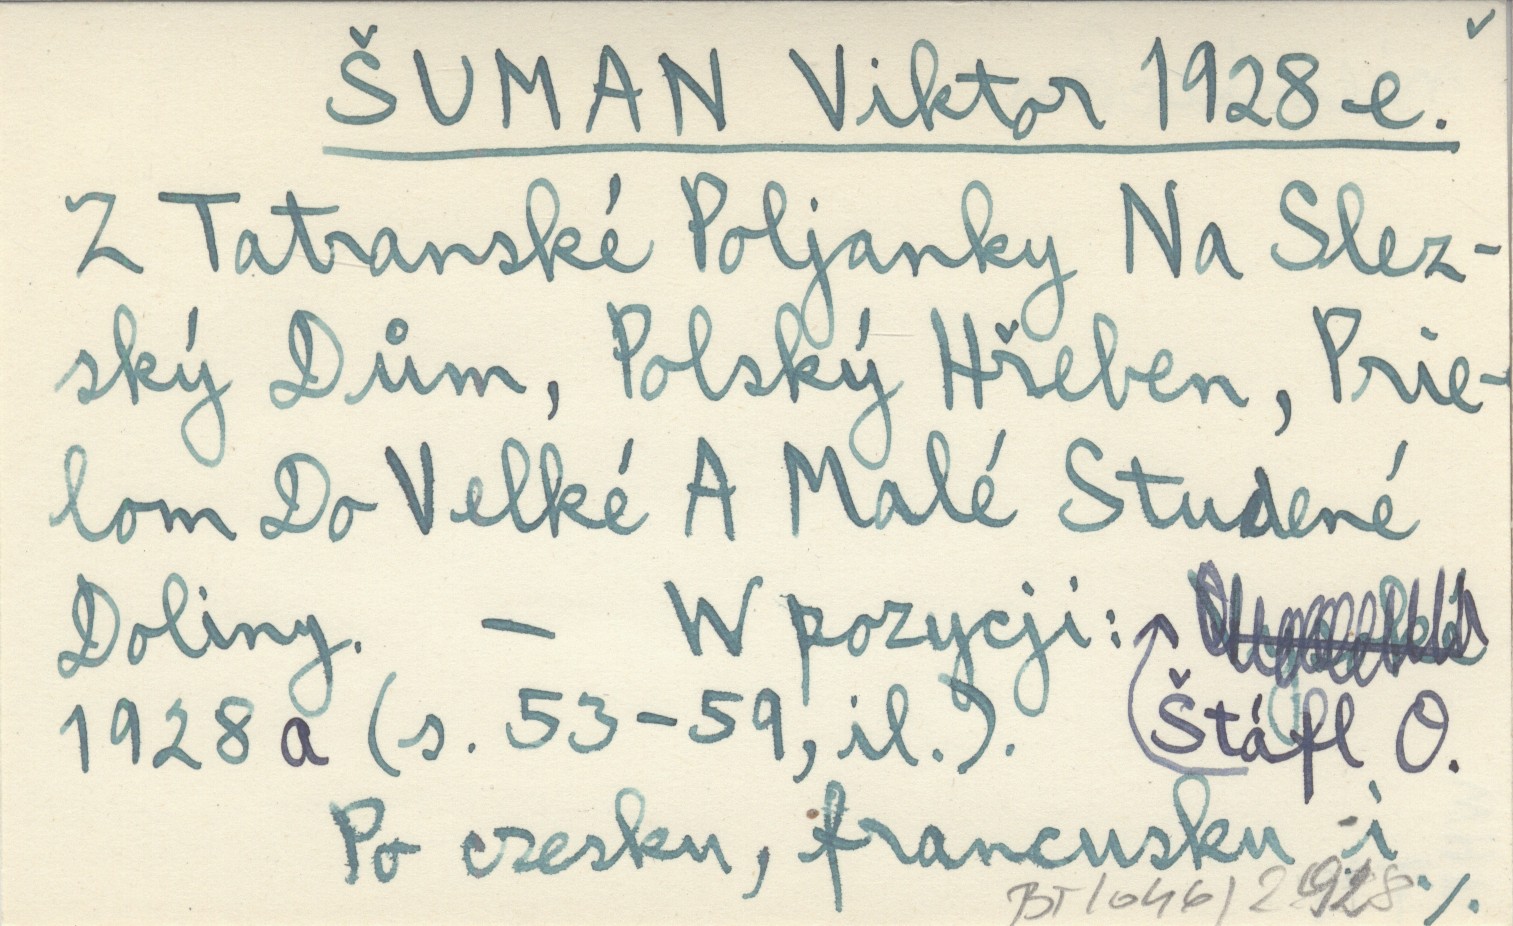 ŠUMAN Viktor 1928-e.
Z Tatranské Poljanky Na Slez-
ský Dům, Polský Hřeben, Prie-
lom Do Velké A Malé Studené
Doliny. — W pozycji:
Štáfl O.
1928a (s. 53-59, il.).
Po czesku, francusku i
BT/046/2 1928 ./.